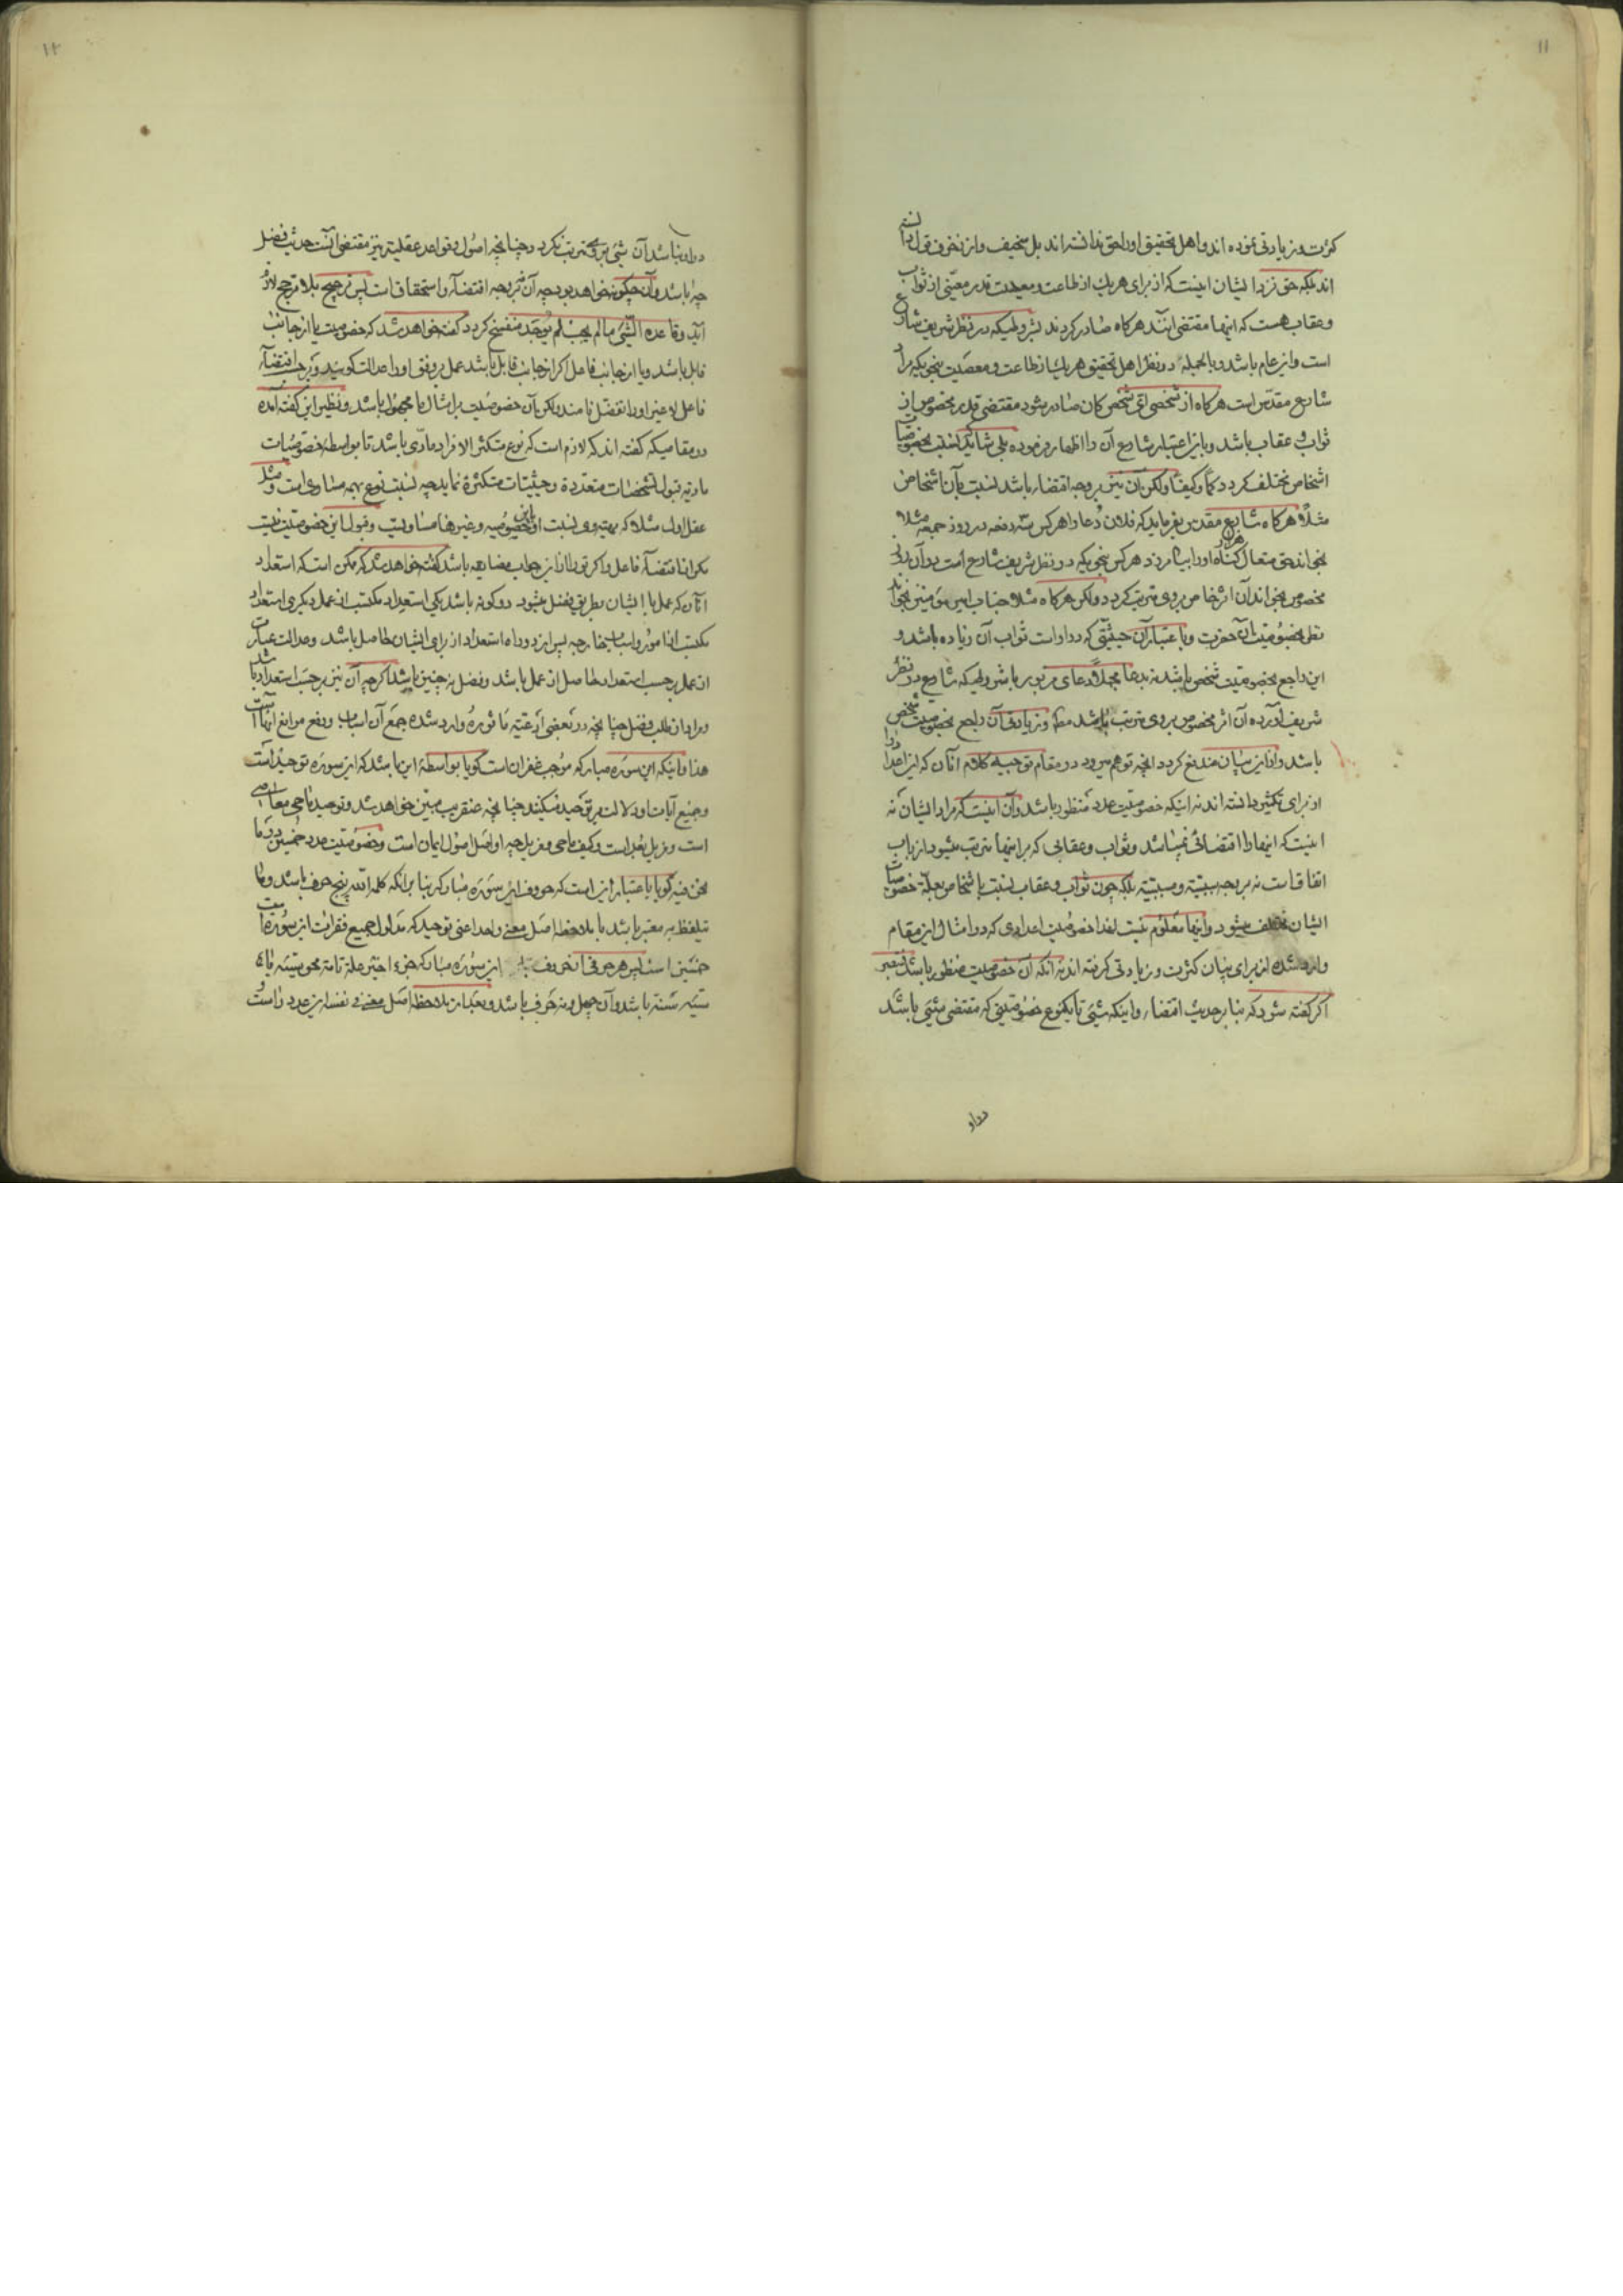 ۱۱
کثرت و زیادتی نموده اند و اهل تحقیق او را حق ندانسته اند بل سخیف و از زخرف قول دانسته
اند بلکه حق نزد ایشان اینست که از برای هر یك از طاعت و معصیت قدر معینی از ثواب
و عقاب هست که اینها مقتضی آنند هرگاه صادر گردند بشرطیکه در نظر شریف شارع
است و این عام باشد و بالجمله در نظر اهل تحقیق هر یك از طاعت و معصیت بنحویکه مراد
شارع مقدّس است هرگاه از شخصی ایّ شخص کان صادر شود مقتضی قدر مخصوص از
ثواب و عقاب باشد و باین اعتبار شارع آن را اظهار فرموده بلی شاید نسبت بخصوصیات
اشخاص مختلف گردد کمّاً و کیفاً ولکن آن نیز بر وجه اقتضاء باشد نسبت بآن اشخاص
مثلاً هرگاه شارع مقدس بفرماید که فلان دُعا را هر کس سه دفعه در روز جمعه مثلا
بخواند حق متعال هزار گناه او را بیامرزد هر کس بنحویکه در نظر شریف شارع است در آن روز
مخصوص بخواند آن اثر خاص بر وی مترتب گردد ولکن هرگاه مثلا جناب امیر مؤمنین بخواند
نظر بخصوصیت آن حضرت و باعتبار آن حیثیتی که در او است ثواب آن زیاده باشد و
این راجع بخصوصیت شخص باشد نه بدعا مجملاً دعای مزبور بشرطیکه شارع در نظر
شریف آورده آن اثر مخصوص بر وی مترتب باشد و زیادتی آن راجع بخصوصیت شخص
باشد و از این بیان مندفع گردد آنچه توهم میرود در مقام توجیه کلام آنان که این اعداد را
از برای تکثیر دانسته اند نه اینکه خصوصیت عدد منظور باشد و آن اینست که مراد ایشان نه
اینست که اینها را اقتضائی نمیباشد و ثواب و عقابی که بر اینها مترتب میشود از باب
اتفاق است نه بر وجه سببیّة و مسببیّة بلکه چون ثواب و عقاب نسبت باشخاص بعلّة خصوصیات
ایشان مختلف میشود و اینها معلوم نیست لهذا خصوصیت اعدادی که در امثال این مقام
وارد شده از برای بیان کثرت و زیادتی گرفته اند نه آنکه آن خصوصیت منظور باشد فتبصر
اگر گفته شود که بنا بر حدیث اقتضاء و اینکه شیئی تا یکنوع خصوصیتی که مقتضی شیئی باشد
در او
۱۲
در او نباشد آن شیئی بر وی مترتب نگردد چنانچه اصول و قواعد عقلیة نیز مقتضی آنست حدیث فضل
چه باشد و آن چگونه خواهد بود چه آن نه بر وجه اقتضاء و استحقاقست پس ترجیح بلا مرجح لازم
آید و قاعده الشّیئ ما لم یجب لم یُوجَد منفسخ گردد گفته خواهد شد که خصوصیت یا از جانب
قابل باشد و یا از جانب فاعل اگر از جانب قابل باشد عمل بر وفق او را عدالت گویند و بر حسب اقتضاء
فاعل لاغیر او را تفضل نامند ولکن آن خصوصیت بر امثال ما مجهول باشد و نظیر این گفته آمده
در مقامیکه گفته اند که لازم است که نوع متکثر الافراد مادّی باشد تا بواسطه خصوصیات
مادیه قبول تشخصات متعددة و حیثیّات متکثرة نماید چه نسبت نوع بهمه مساوی است و مثل
عقل اول مثلا که مهیة وی نسبت باین خصوصیه و غیرها مساویست و قبول این خصوصیت نیست
مگر از اقتضاء فاعل و اگر تو را از این جواب مضایقه باشد گفته خواهد شد که ممکن است که استعداد
آنان که عمل با ایشان بطریق فضل میشود دو گونه باشد یکی استعداد مکتسب از عمل دیگری استعداد
مکتسب از امور و اسباب خارجه پس از دو راه استعداد از برای ایشان حاصل باشد و عدالت عبارت
از عمل بر حسب استعداد حاصل از عمل باشد و فضل نه چنین باشد اگرچه آن نیز بر حسب استعداد باشد
و مراد از طلب فضل چنانچه در بعضی ادعیّه ماثوره وارد شده جمع آن اسباب و دفع موانع آنهاست
هذا و اینکه این سوره مبارکه موجب غفران است گویا بواسطهٔ این باشد که این سوره توحید است
و جمیع آیات او دلالت بر توحید میکنند چنانچه عنقریب مبین خواهد شد و توحید ماحی معاصی
است و مزیل بعد است و کیف ماحی و مزیل چه او اصل اصول ایمان است و خصوصیت عدد خمسین در ما
نحن فیه گویا باعتبار این است که حروف این سوره مبارکه بنا بر آنکه کلمه الله پنج حرف باشد و ما
یتلفظ به معتبر باشد با ملاحظه اصل معنی واحد اعنی توحید که مدلول جمیع فقرات این سوره است
خمسین است پس هر حرفی از حروف این سوره مبارکه جزء اخیر علة تامة محو سیئه مائه
سیئه سنة باشد و آن چهل و نه حرف باشد و بعد از ملاحظه اصل معنی و نفسه این عدد راست